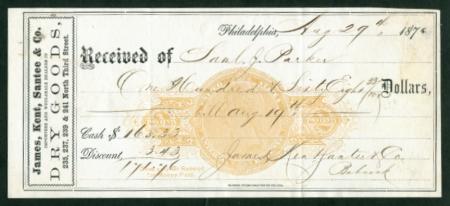 James, Kent, Santee & Co.
IMPORTERS AND WHOLESALE DEALERS IN
DRY GOODS,
235, 237, 239 & 241 North Third Street.
Philadelphia, Aug 29th 187
Received of Saml. J. Parker
One Hundred & Sixty Eight Dollars,
Bill Aug 19th
Cash $ 168.33
Discount, 3.43
171.76
James Kent Santee & Co.